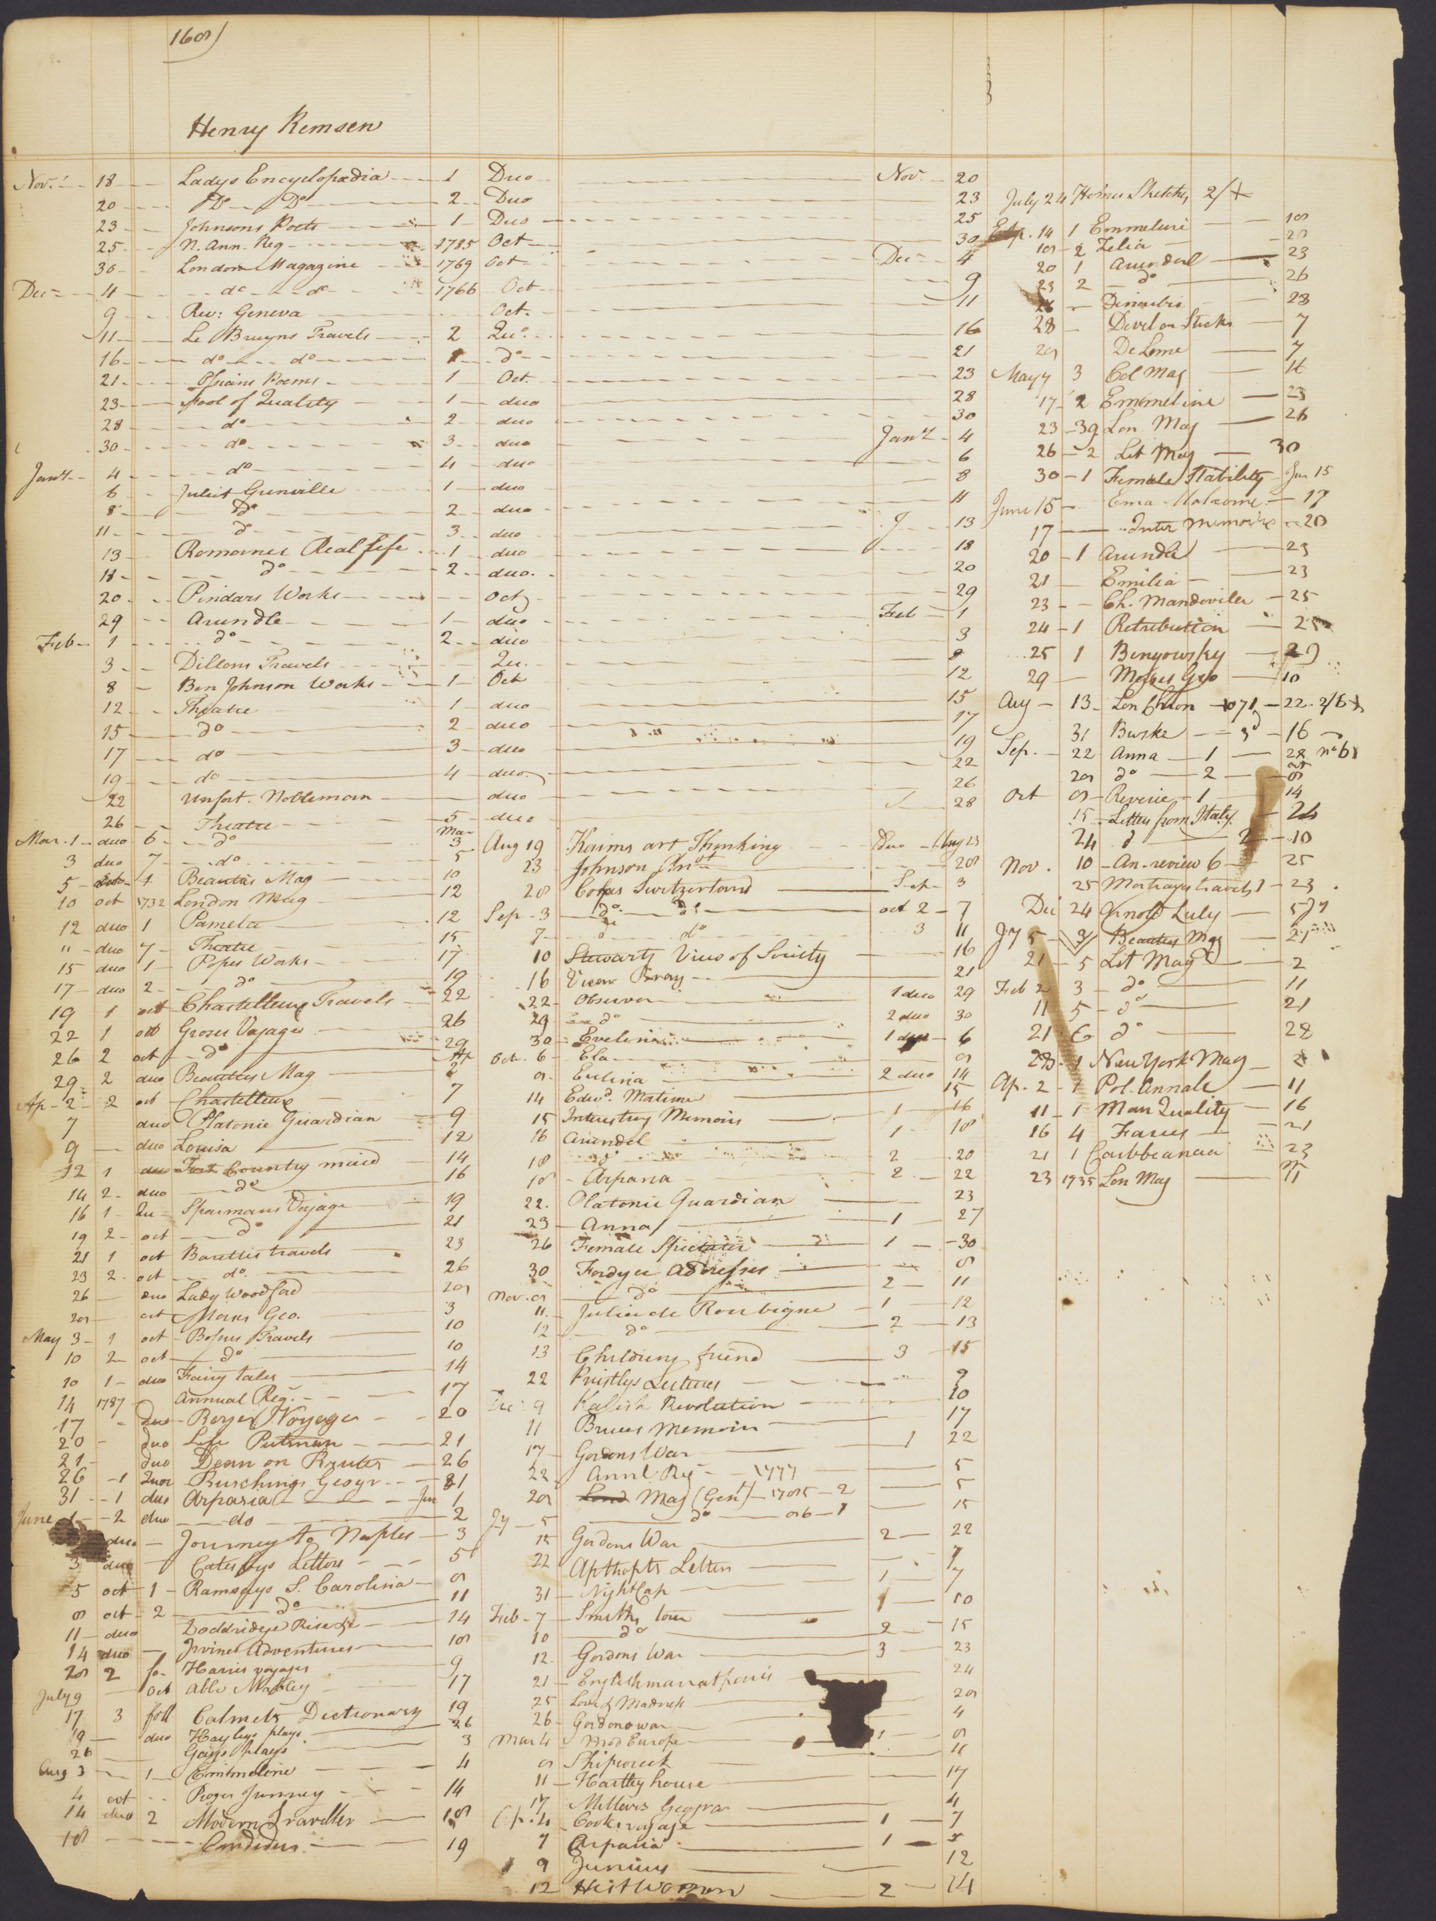 168)
Henry Remsen
Nov. 18 Ladys Encyclopædia 1 Duo Nov 20
20 Do Do 2 Duo 23
23 Johnsons Poets 1 Duo 25
25 N. Ann. Reg 1785 Oct 30
30 London Magazine 1769 Oct Dec 4
Dec 4 do do 1766 Oct 9
9 Rev: Geneva Oct. 11
11 Le Bruyns Travels 2 Quo. 16
16 do do 1 do 21
21 Ossians Poems 1 Oct. 23
23 Fool of Quality 1 duo 28
28 do 2 duo 30
30 do 3 duo Jany 4
Jany 4 do 4 duo 6
6 Juliet Grenville 1 duo 8
8 Do 2 duo 11
11 do 3 duo 13
13 Romance Real Life 1 duo 18
18 do 2 duo. 20
20 Pindars Works Oct 29
29 Arundle 1 duo Feb 1
Feb 1 do 2 duo 3
3 Dillons Travels Qu. 8
8 Ben Johnson Works 1 Oct 12
12 Theatre 1 duo 15
15 do 2 duo 17
17 do 3 duo 19
19 do 4 duo 22
22 Unfort. Nobleman duo 26
26 Theatre 5 duo 28
Mar. 1 duo 6 do Mar 3
3 duo 7 do 5
5 4 Beauties Mag 10
10 oct 1732 London Mag 12
12 duo 1 Pamela 12
" duo 7 Theatre 15
15 duo 1 Popes Works 17
17 duo 2 do 19
19 1 oct Chastelleux Travels 22
22 1 oct Groses Voyages 26
26 2 oct do 29
29 2 duo Beauties Mag Ap 2
Ap 2 2 oct Chastelleux 7
7 duo Platonic Guardian 9
9 duo Louisa 12
12 1 duo Country maid 14
14 2 duo do 16
16 1 Qu Sparmans Voyage 19
19 2 oct do 21
21 1 oct Barettis travels 23
23 2 oct do. 26
26 duo Lady Woodford 28
28 oct Morses Geo. 3
May 3 1 oct Travels 10
10 2 oct do 10
10 1 duo Fairy tales 14
14 1787 Annual Reg. 17
17 duo Voyage 20
20 duo Life Putman 21
21 duo Dean on Routes 26
26 1 Quo Buschings Geogr 31
31 1 duo Arpasia Jun 1
June 1 2 duo do 2
duo Journey to Naples 3
3 duo Letters 5
5 oct 1 Ramsays S. Carolina 8
8 oct 2 do 11
11 duo Doddridge Rise &c 14
14 duo Irvines Adventures 18
28 2 fo Harris voyages 9
July 9 Oct Abbe Mabley 17
17 3 foll Calmets Dictionary 19
19 duo Hayleys plays 26
26 Gays plays 3
Aug 3 1 Emmeline 4
4 oct Roger Jummey 14
14 duo 2 Modern Traveller 18
18 Candidus 19
Aug 19 Kaims art Thinking Duo Aug 23
23 Johnson 28
28 Coxes Switzerland Sep 3
Sep 3 do do oct 2 7
7 do do 3 11
10 Stewarts View of Society 16
16 View Bray 21
22 Observer 1 duo 29
29 do 2 duo 30
30 Evelina 1 duo 6
Oct. 6 Ela 8
8 Evelina 2 duo 14
14 Edwd. Mortimer 15
15 Interesting Memoirs 1 16
16 Arundel 1 18
18 do 2 20
18 Arpasia 2 22
22. Platonic Guardian 23
23 Anna 1 27
26 Female Spectator 1 30
30 Fordyce Addresses 8
Nov. 8 do 2 11
11. Julia de Roubigne 1 12
12 do 2 13
13 Childrens friend 3 15
22 Pristlys Lectures 9
Dec 9 Revolution 10
11 Bruces Memoirs 17
17 Gordons War 1 22
22 Annl Reg 1777 5
28 Mag (Gent) 1785 2 5
Jy 5 do 86 1 15
15 Gordons War 2 22
22 Apthorps Letters 7
31 Night Cap 1 7
Feb 7 Smiths tour 1 10
10 do 2 15
12 Gordons War 3 23
21 Englishman at paris 24
25 Love & Madness 28
26 Gordons war 4
Mar 4 Mod Europe 1 8
8 Shipwreck 11
11 Hartley house 17
17 Millers Geogra 4
Ap. 4 Cooks voyage 1 7
7 Arpasia 1 5
9 Junius 12
12 Hist Woman 2 14
July 24 Homes Sketches 2/
14 1 Emmeline 18
18 2 Zelia 20
20 1 Arundel 23
23 2 do 26
26 28
28 Devil on Sticks 7
28 De Lome 7
May 7 3 Col Mag 16
17 2 Emmeline 23
23 39 Lon Mag 26
26 2 Lit Mag 30
30 1 Female Stability Jun 15
June 15 Ema 17
17 Inter memoirs 20
20 1 Arundel 23
21 Emilia 23
23 Ch. Mandeville 25
24 1 Retribution 25
25 1 Benyowsky 29
29 Morses Geo 10
Aug 13 Lon Chron 1071 22. 2/6
31 Burke 3d 16
Sep. 22 Anna 1 28
28 do 2 8
Oct 8 Reverie 1 14
15 Letters from Italy 24
24 do 2 10
Nov. 10 An. review 6 25
25 travels 1 23
Dec 24 Arnold Luly
Jy 5 3 Beauties Mag 21
21 5 Lit Mag 2
Feb 2 3 do 11
11 5 do 21
21 6 do 28
28 1 New York Mag 2
Ap. 2 1 Pol. Annals 11
11 1 Man Quality 16
16 4 21
21 1 Caribbeana 23
23 1735 Lon Mag 11